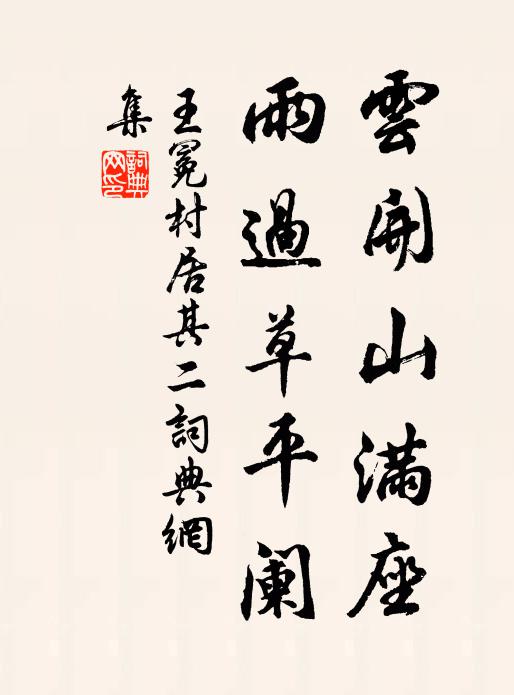 雲開山滿座
雨過草平闌
王冕村居其二詞典網
集
詞典
网印